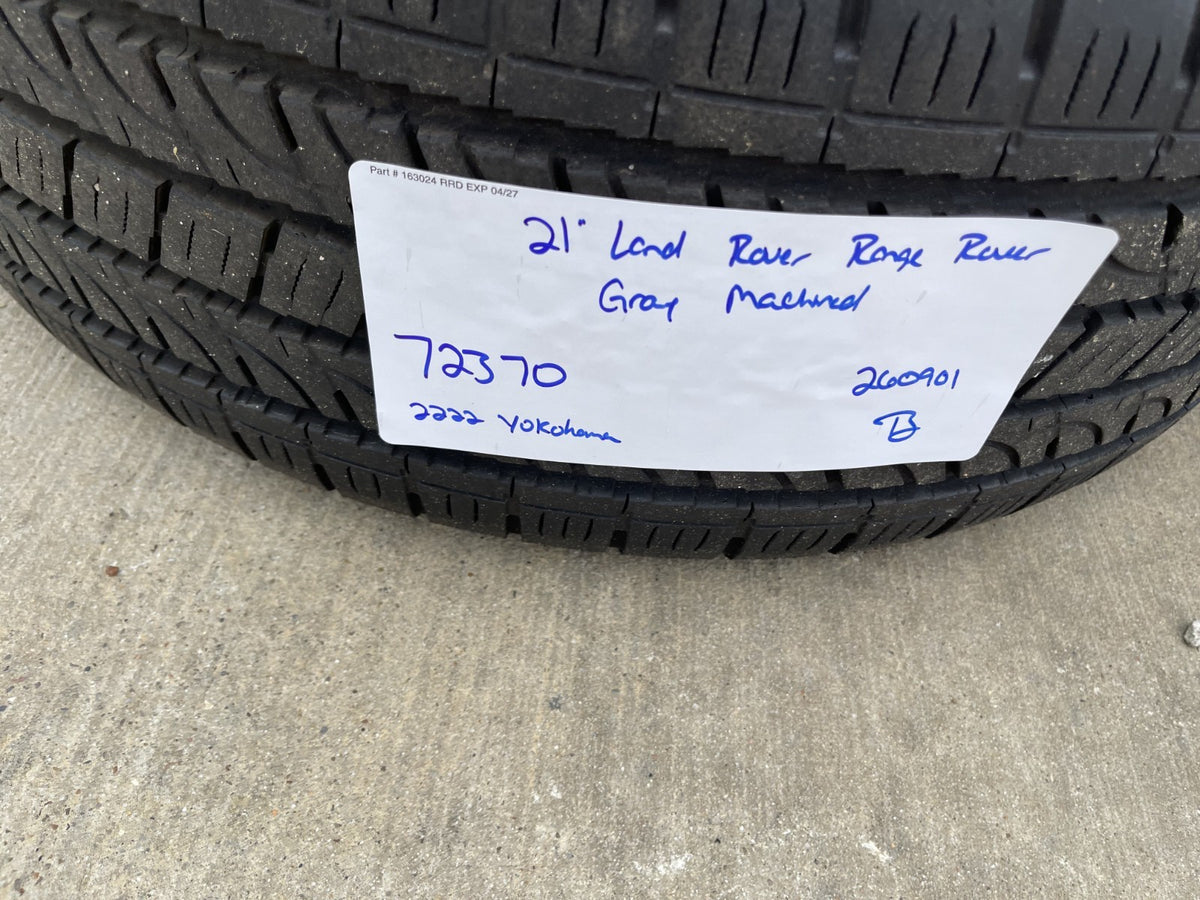 Part # 163024 RRD EXP 04/27
21" Land Rover Range Rover
Gray Machined
72370
260901
2222 Yokohama